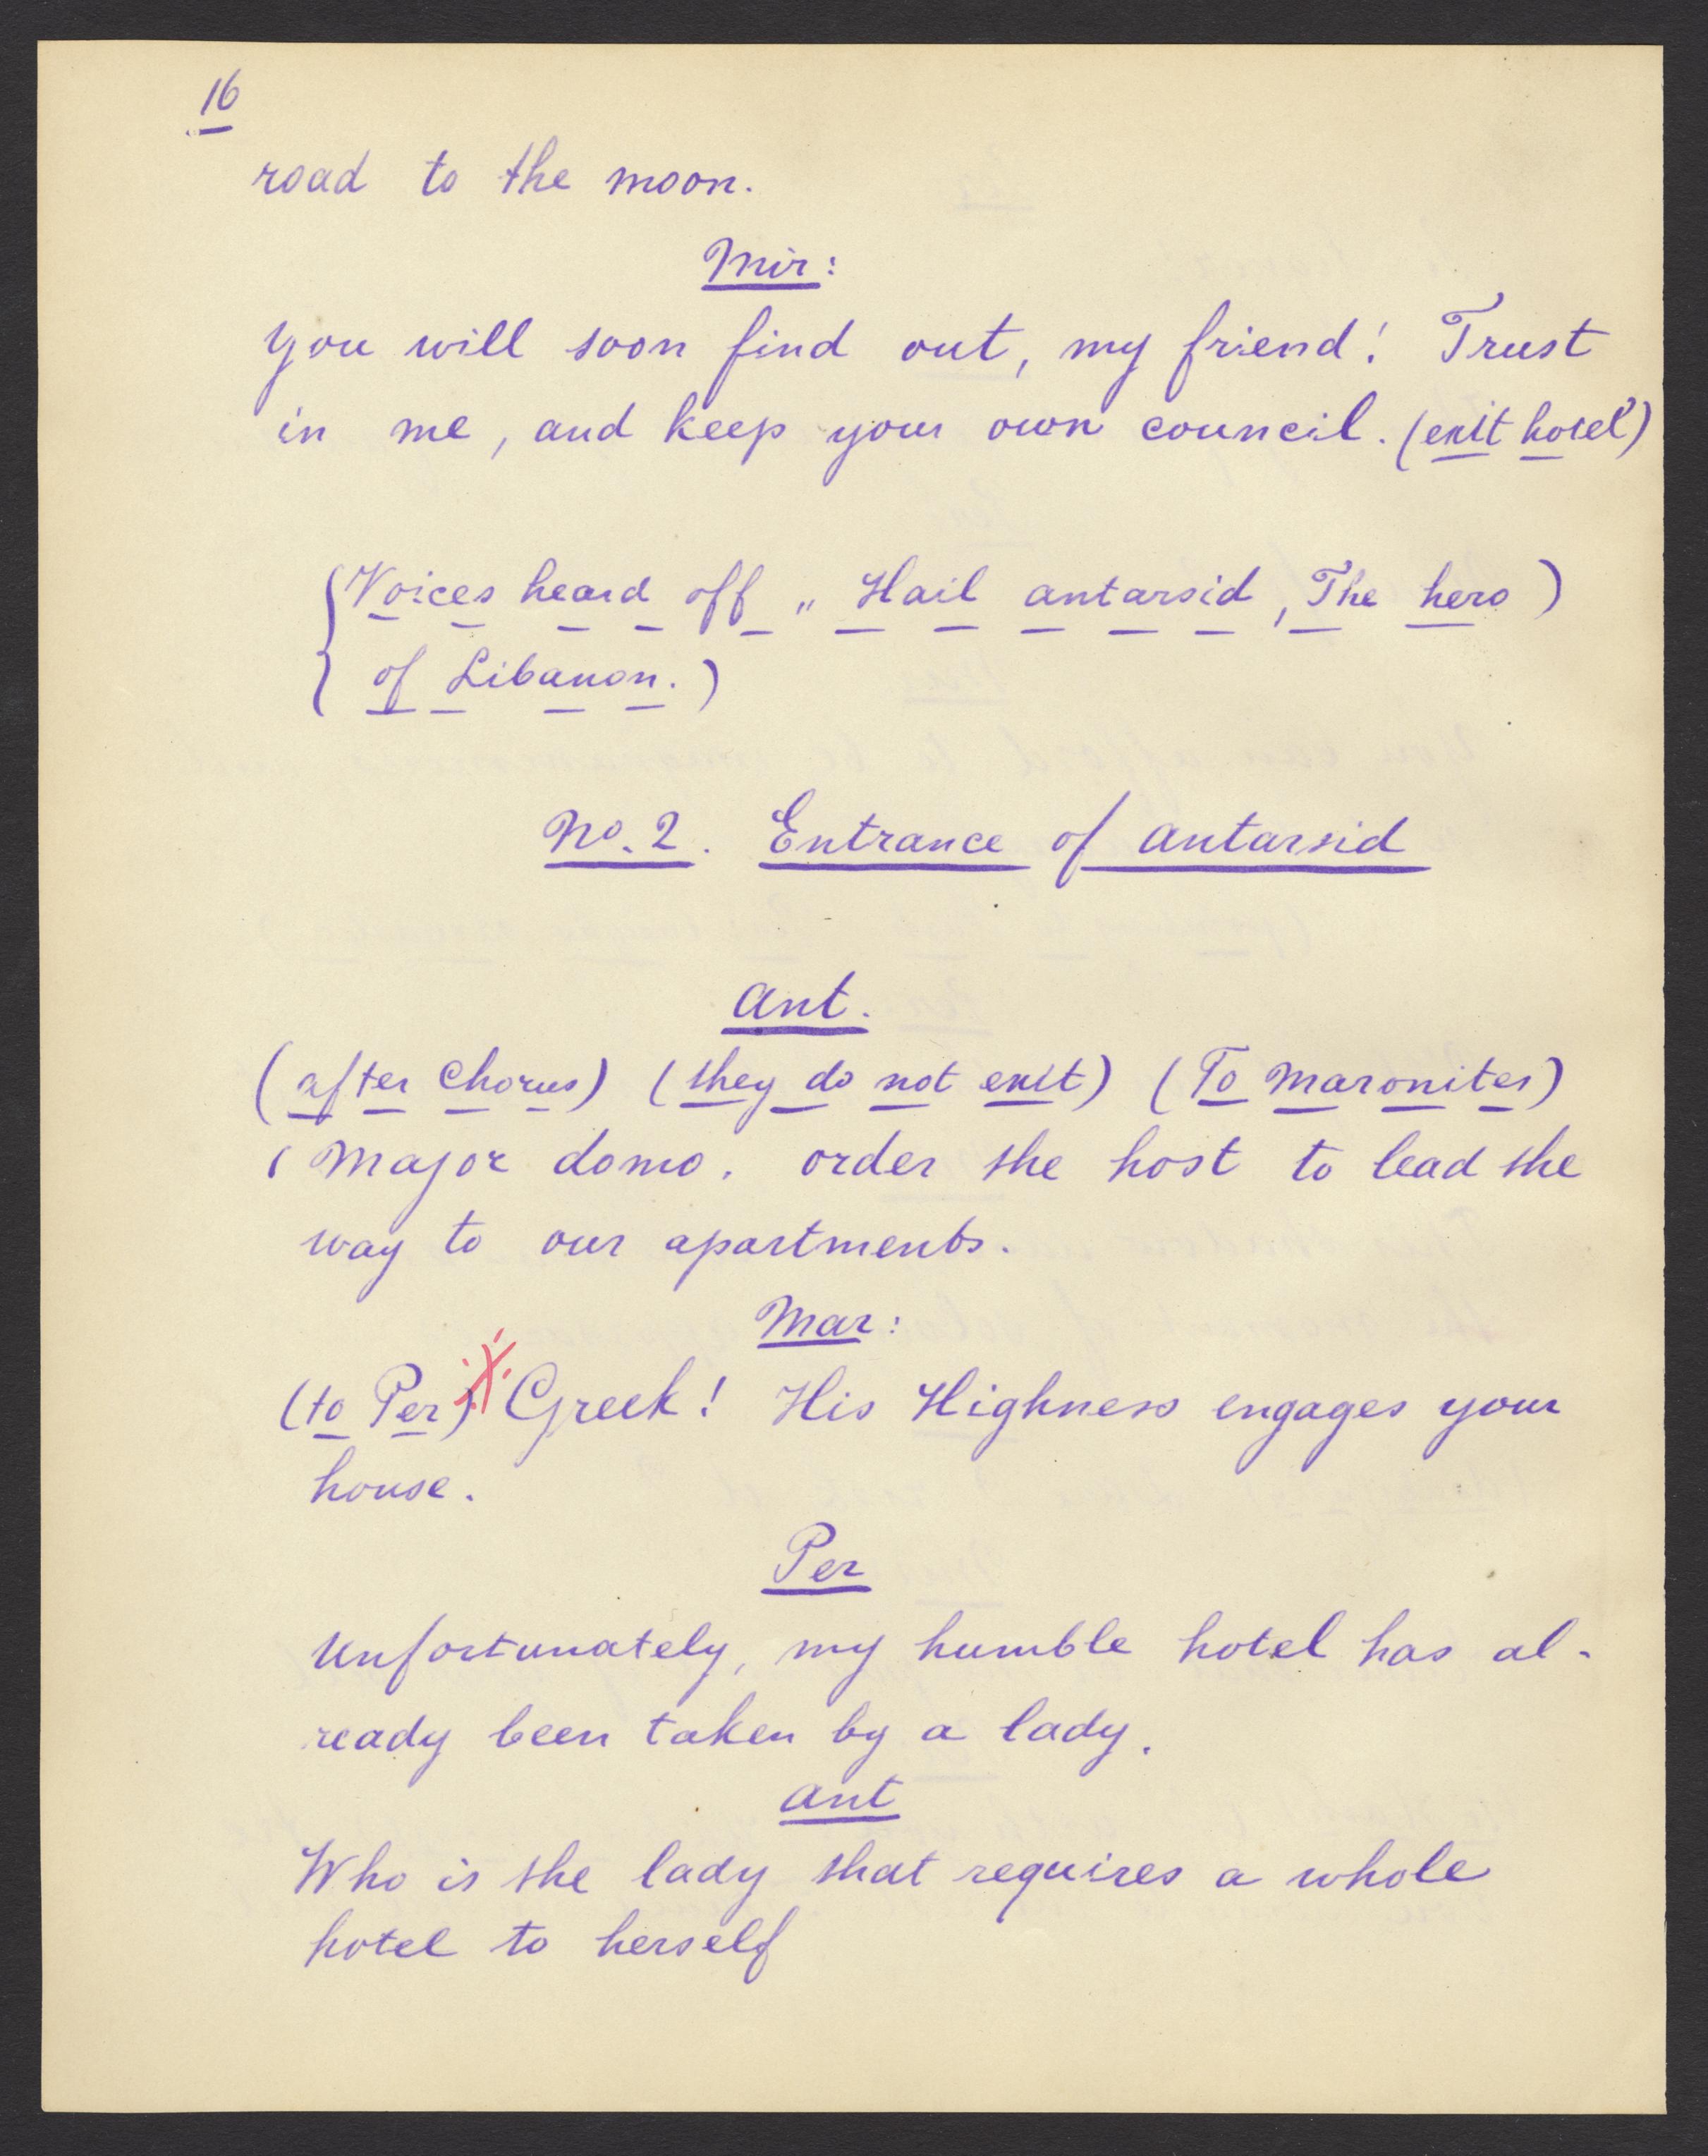 16
road to the moon.
Mir:
You will soon find out, my friend! Trust
in me, and keep your own council. (exit hotel)
(Voices heard off „ Hail antarsid, The hero)
of Libanon.)
No. 2. Entrance of antarsid
Ant.
(after Chorus) (they do not exit) (To Maronites)
( Major domo. order the host to lead the
way to our apartments.
Mar:
(to Per) Greek! His Highness engages your
house.
Per
Unfortunately, my humble hotel has al-
ready been taken by a lady.
Ant
Who is the lady that requires a whole
hotel to herself